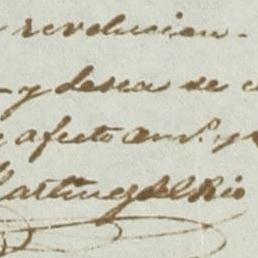 revolucion.
y desea de
afecto am.º y
Martinez del Rio